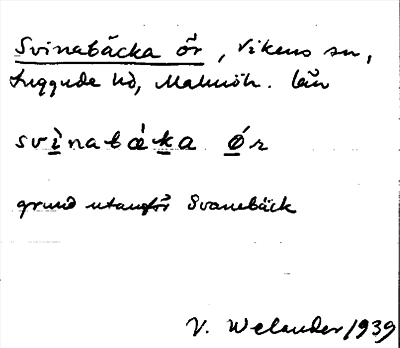 Svinabäcka ör, Vikens sn,
Luggude hd, Malmöh. län
svìnabá̈ka ǿr
grund utanför Svanebäck
V. Welander 1939